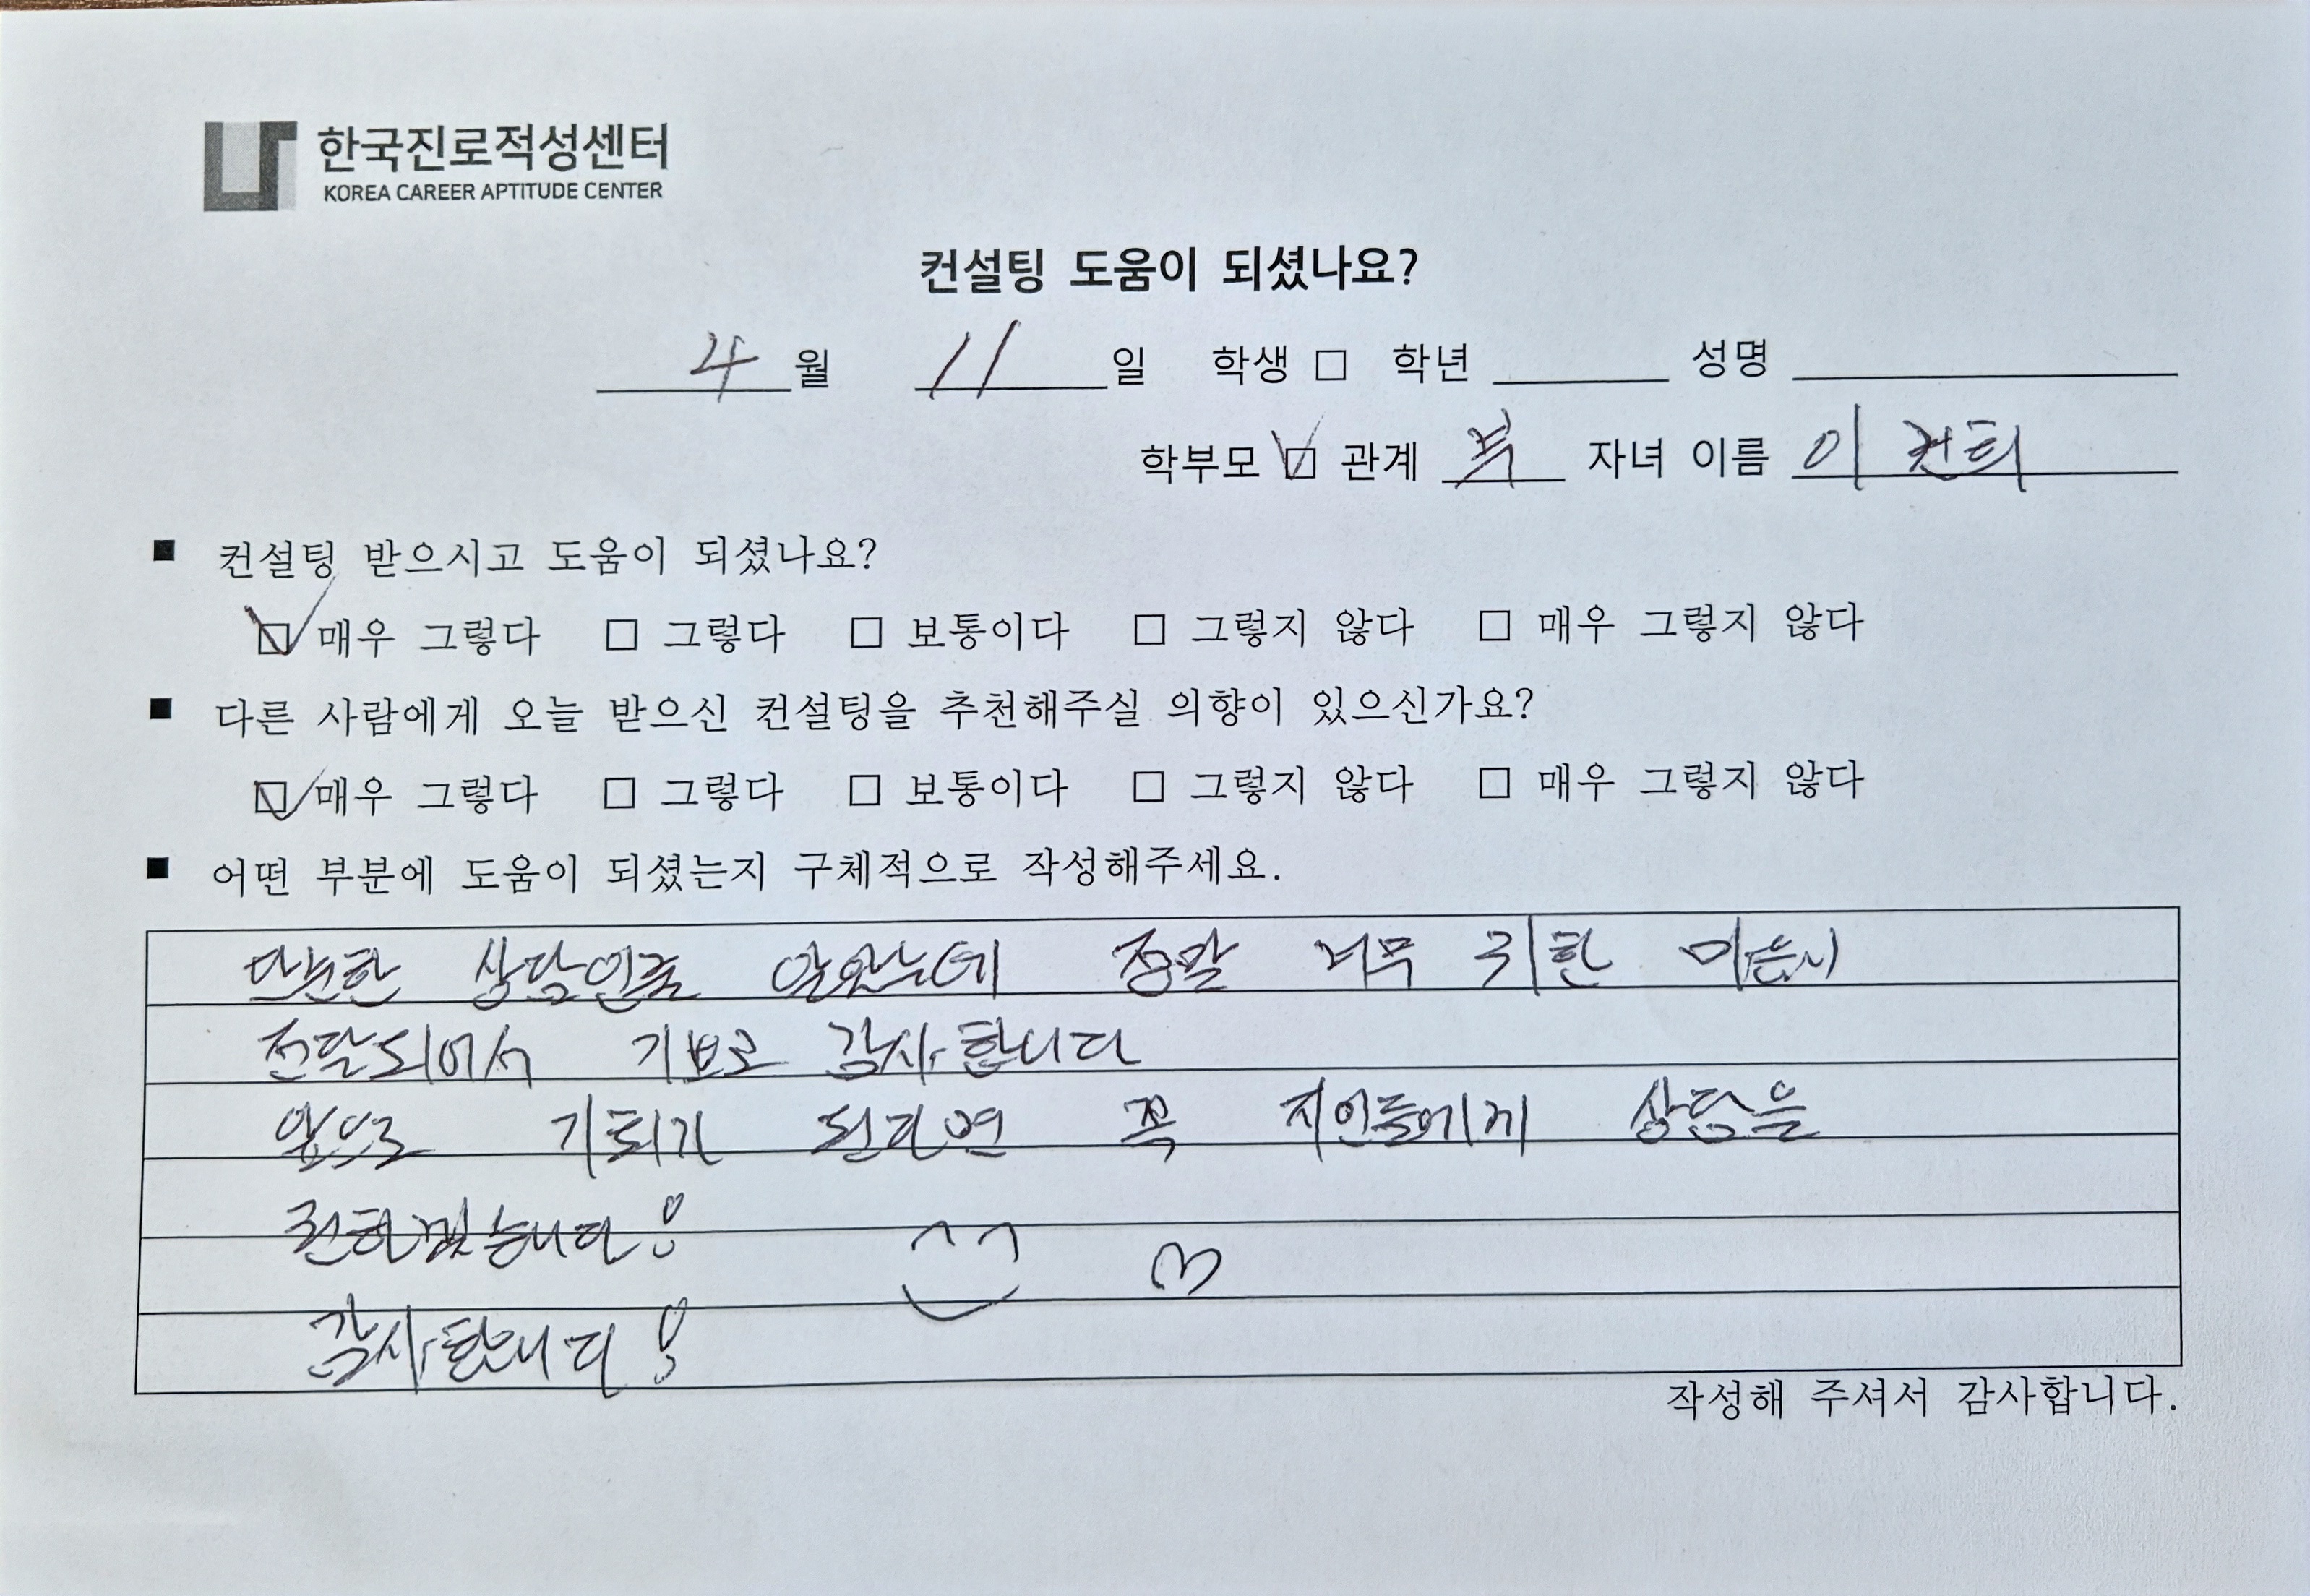 한국진로적성센터
KOREA CAREER APTITUDE CENTER
컨설팅 도움이 되셨나요?
4 월 11 일 학생 □ 학년 성명
학부모 ☑ 관계 부 자녀 이름 이
■ 컨설팅 받으시고 도움이 되셨나요?
☑ 매우 그렇다 □ 그렇다 □ 보통이다 □ 그렇지 않다 □ 매우 그렇지 않다
■ 다른 사람에게 오늘 받으신 컨설팅을 추천해주실 의향이 있으신가요?
☑ 매우 그렇다 □ 그렇다 □ 보통이다 □ 그렇지 않다 □ 매우 그렇지 않다
■ 어떤 부분에 도움이 되셨는지 구체적으로 작성해주세요.
단순한 상담인줄 알았는데 정말 너무 귀한
전달되어서 감사합니다
앞으로 기회가 된다면 꼭 지인들에게 상담을
권하겠습니다!
감사합니다!
작성해 주셔서 감사합니다.